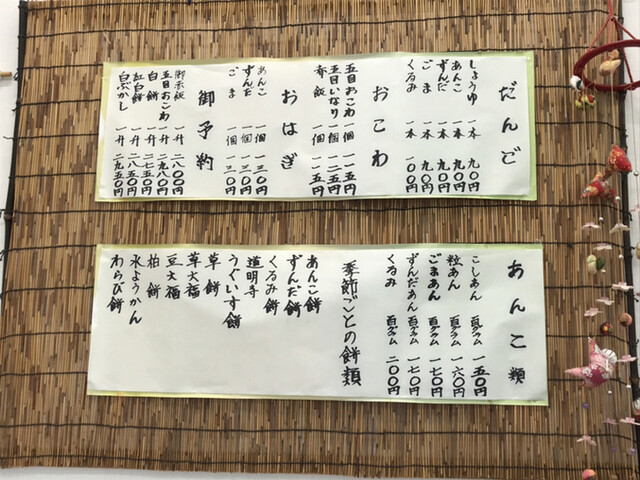 だんご
しょうゆ 一本 九〇円
あんこ 一本 九〇円
ずんだ 一本 九〇円
ごま 一本 九〇円
くるみ 一本 一〇〇円
おこわ
五目おこわ 一個 一一五円
五目いなり 一個 一二五円
赤飯 一個 一一五円
おはぎ
あんこ 一個 一三〇円
ずんだ 一個 一三〇円
ごま 一個 一三〇円
御予約
御赤飯 一升 二八〇〇円
五目おこわ 一升 二九八〇円
白餅 一升 二七五〇円
紅白餅 一升 二八五〇円
白ぶかし 一升 二九五〇円
あんこ類
こしあん 百グラム 一五〇円
粒あん 百グラム 一六〇円
ごまあん 百グラム 一七〇円
ずんだあん 百グラム 一七〇円
くるみ 百グラム 二〇〇円
季節ごとの餅類
あんこ餅
ずんだ餅
くるみ餅
道明寺
うぐいす餅
草餅
草大福
豆大福
柏餅
水ようかん
わらび餅